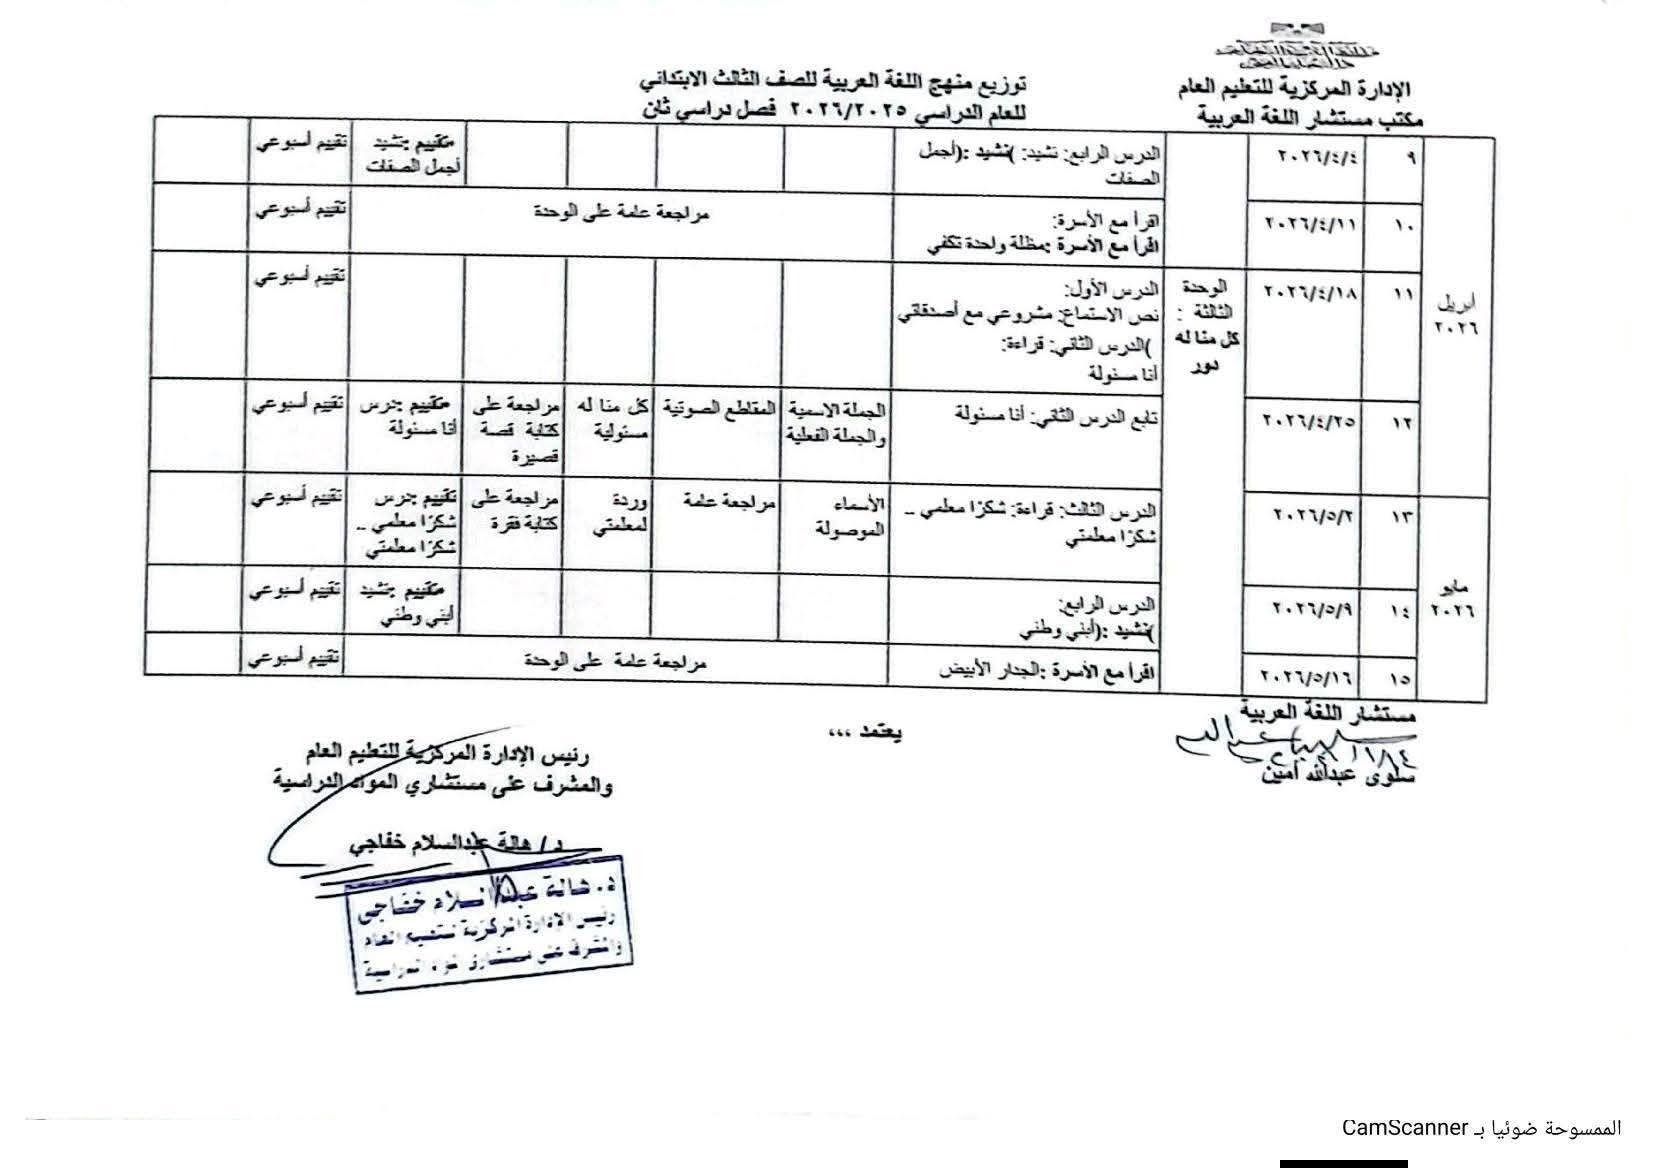 الإدارة المركزية للتعليم العام
مكتب مستشار اللغة العربية
توزيع منهج اللغة العربية للصف الثالث الابتدائي
للعام الدراسي ٢٠٢٦/٢٠٢٥ فصل دراسي ثان
أبريل
٢٠٢٦
٩
٢٠٢٦/٤/٤
الدرس الرابع: نشيد: )نشيد :(أجمل
الصفات
تقييم :نشيد
أجمل الصفات
تقييم أسبوعي
١٠
٢٠٢٦/٤/١١
اقرأ مع الأسرة:
اقرأ مع الأسرة :مظلة واحدة تكفي
مراجعة عامة على الوحدة
تقييم أسبوعي
الوحدة
الثالثة :
كل منا له
دور
١١
٢٠٢٦/٤/١٨
الدرس الأول:
نص الاستماع: مشروعي مع أصدقائي
)الدرس الثاني: قراءة:
أنا مسئولة
تقييم أسبوعي
١٢
٢٠٢٦/٤/٢٥
تابع الدرس الثاني: أنا مسئولة
الجملة الاسمية
والجملة الفعلية
المقاطع الصوتية
كل منا له
مسئولية
مراجعة على
كتابة قصة
قصيرة
تقييم :درس
أنا مسئولة
تقييم أسبوعي
مايو
٢٠٢٦
١٣
٢٠٢٦/٥/٢
الدرس الثالث: قراءة: شكرًا معلمي ..
شكرًا معلمتي
الأسماء
الموصولة
مراجعة عامة
وردة
لمعلمتي
مراجعة على
كتابة فقرة
تقييم :درس
شكرًا معلمي ..
شكرًا معلمتي
تقييم أسبوعي
١٤
٢٠٢٦/٥/٩
الدرس الرابع:
)نشيد :(أبني وطني
تقييم :نشيد
أبني وطني
تقييم أسبوعي
١٥
٢٠٢٦/٥/١٦
اقرأ مع الأسرة :الجدار الأبيض
مراجعة عامة على الوحدة
تقييم أسبوعي
مستشار اللغة العربية
سلوى عبدالله أمين
يعتمد ،،،
رئيس الإدارة المركزية للتعليم العام
والمشرف على مستشاري المواد الدراسية
د/ هالة عبدالسلام خفاجي
د. هالة عبد السلام خفاجي
رئيس الإدارة المركزية للتعليم العام
والمشرف على مستشاري المواد الدراسية
الممسوحة ضوئيا بـ CamScanner